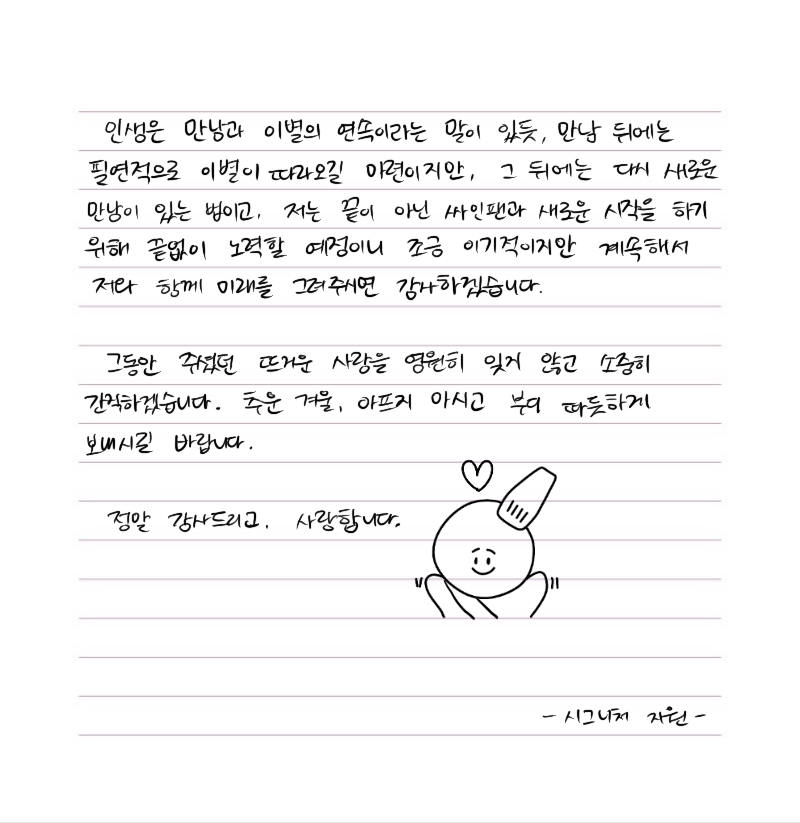 인생은 만남과 이별의 연속이라는 말이 있듯, 만남 뒤에는
필연적으로 이별이 따라오길 마련이지만, 그 뒤에는 다시 새로운
만남이 있는 법이고, 저는 끝이 아닌 싸인팬과 새로운 시작을 하기
위해 끝없이 노력할 예정이니 조금 이기적이지만 계속해서
저와 함께 미래를 그려주시면 감사하겠습니다.
그동안 주셨던 뜨거운 사랑을 영원히 잊지 않고 소중히
간직하겠습니다. 추운 겨울, 아프지 마시고 부디 따듯하게
보내시길 바랍니다.
정말 감사드리고, 사랑합니다.
- 시그니처 지원 -